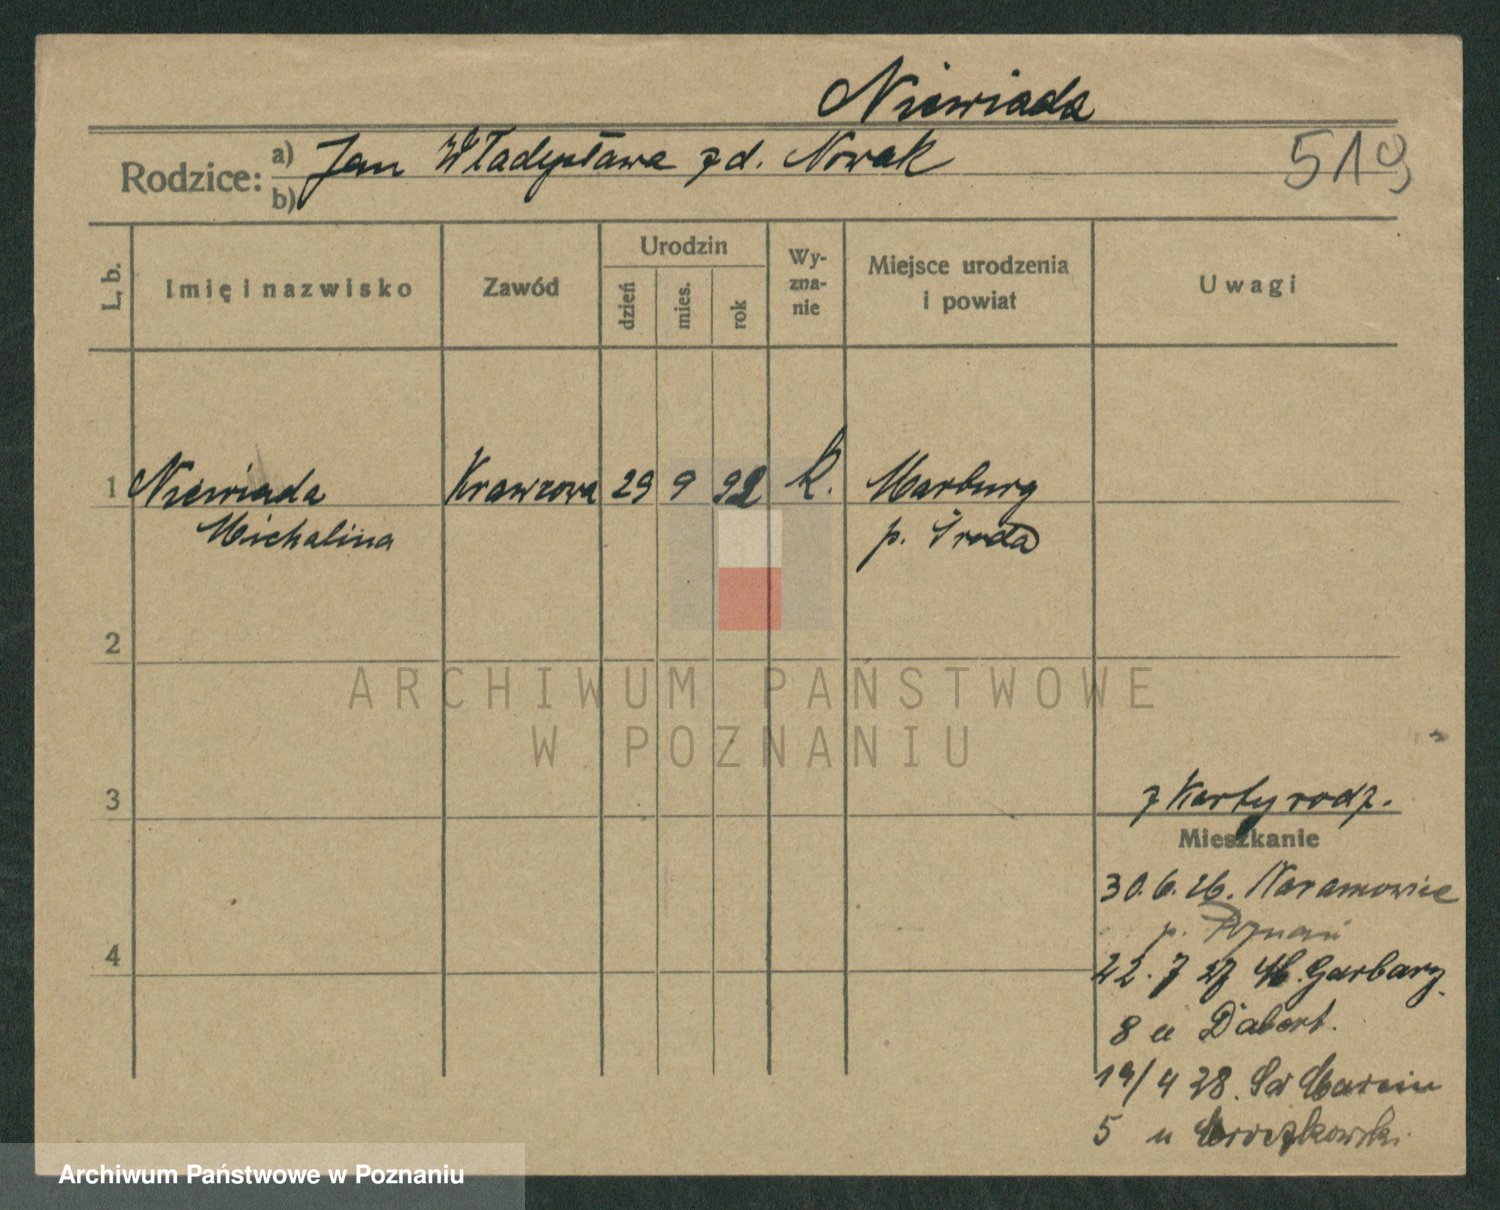 Niewiada
519
Rodzice: a) Jan Władysława z d. Nowak
b)
L, b.
Imię i nazwisko
Zawód
Urodzin
dzień
mies.
rok
Wy-
zna-
nie
Miejsce urodzenia
i powiat
Uwagi
1 Niewiada Krawcowa 29 9 92 k. Marburg
Michalina p. Środa
2
ARCHIWUM PAŃSTWOWE
W POZNANIU
3
z Karty rodz.
Mieszkanie
30.6.26. Naramowice
p. Poznań
4
22. 7 27 W. Garbary
8 u Dabert.
19/4 28. Św Marcin
5 u Mroczkowski
Archiwum Państwowe w Poznaniu